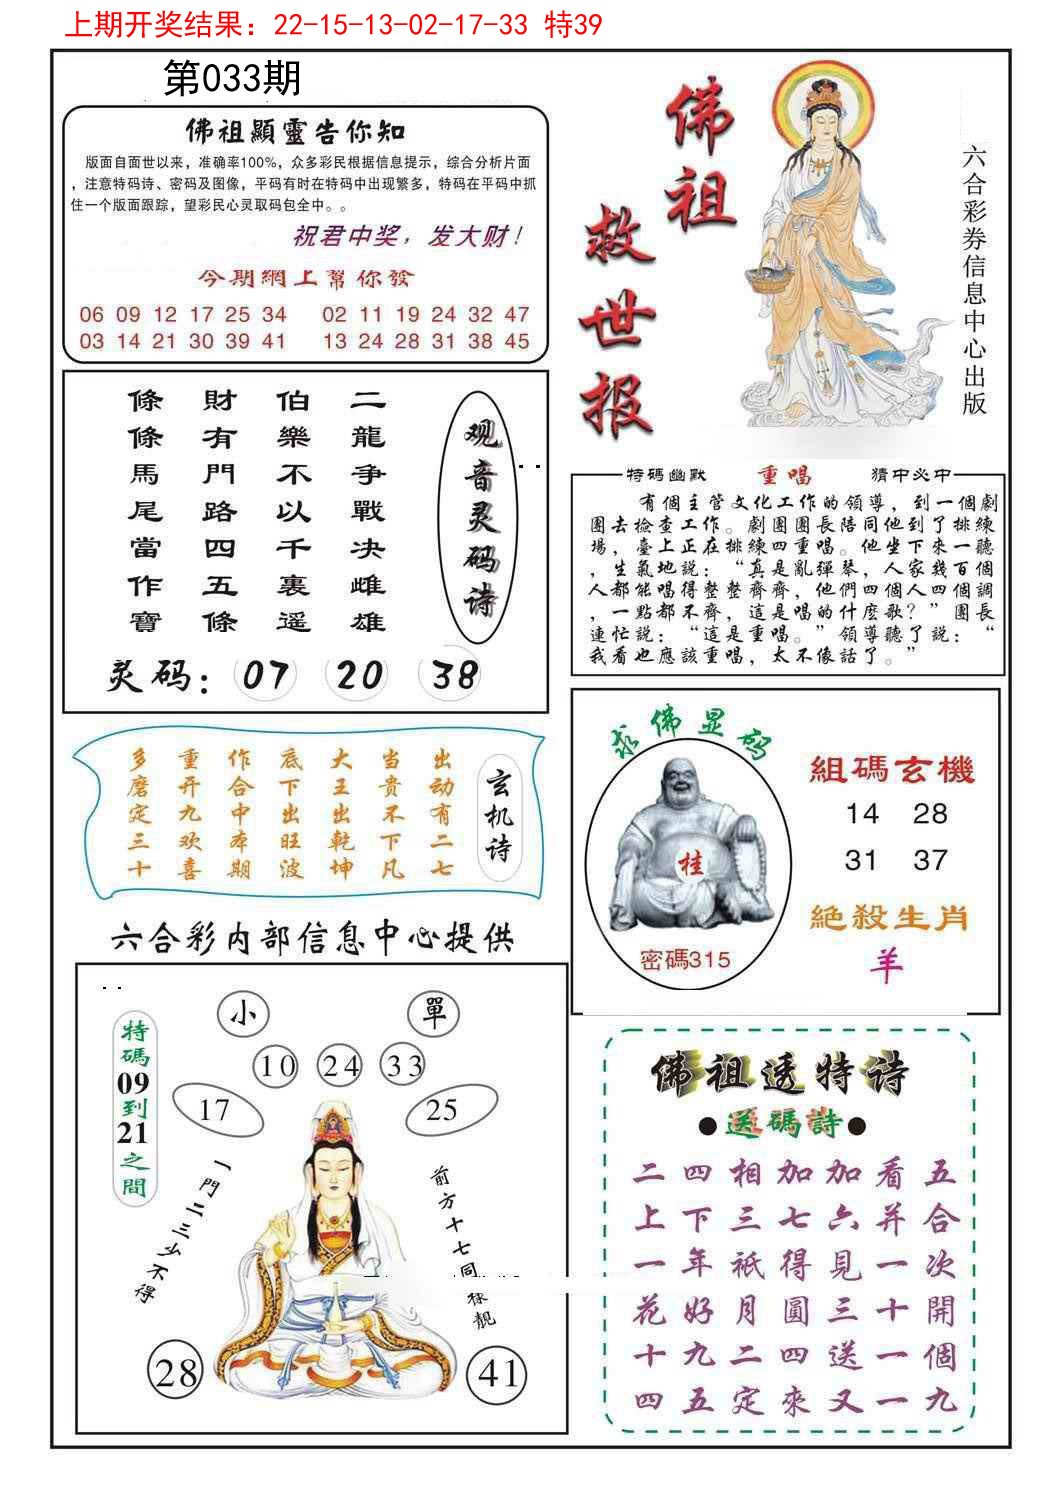 上期开奖结果：22-15-13-02-17-33 特39
第033期
佛祖顯靈告你知
版面自面世以来，准确率100%，众多彩民根据信息提示，综合分析片面
，注意特码诗、密码及图像，平码有时在特码中出现繁多，特码在平码中抓
住一个版面跟踪，望彩民心灵取码包全中。。
祝君中奖，发大财！
今期網上幫你發
06 09 12 17 25 34 02 11 19 24 32 47
03 14 21 30 39 41 13 24 28 31 38 45
佛祖
救世报
六合彩券信息中心出版
观音灵码诗
二龍争戰决雌雄
伯樂不以千裏遥
財有門路四五條
條條馬尾當作寶
灵码：07 20 38
特码幽默 重唱 猜中必中
有個主管文化工作的領導，到一個劇
團去檢查工作。劇團團長陪同他到了排練
場，臺上正在排練四重唱。他坐下來一聽
，生氣地説：“真是亂彈琴，人家幾百個
人都能唱得整整齊齊，他們四個人四個調
，一點都不齊，這是唱的什麽歌？”團長
連忙説：“這是重唱。”領導聽了説：“
我看也應該重唱，太不像話了。”
玄机诗
出动有二七
当贵不下凡
大王出乾坤
底下出旺波
作合中本期
重开九欢喜
多磨定三十
求佛显码
桂
密碼315
組碼玄機
14 28
31 37
絕殺生肖
羊
六合彩内部信息中心提供
小 單
10 24 33
17 25
特碼09到21之間
一門二三少不得
前方十七同樣靚
28 41
佛祖透特诗
●送碼詩●
二四相加加看五
上下三七六并合
一年祇得見一次
花好月圓三十開
十九二四送一個
四五定來又一九